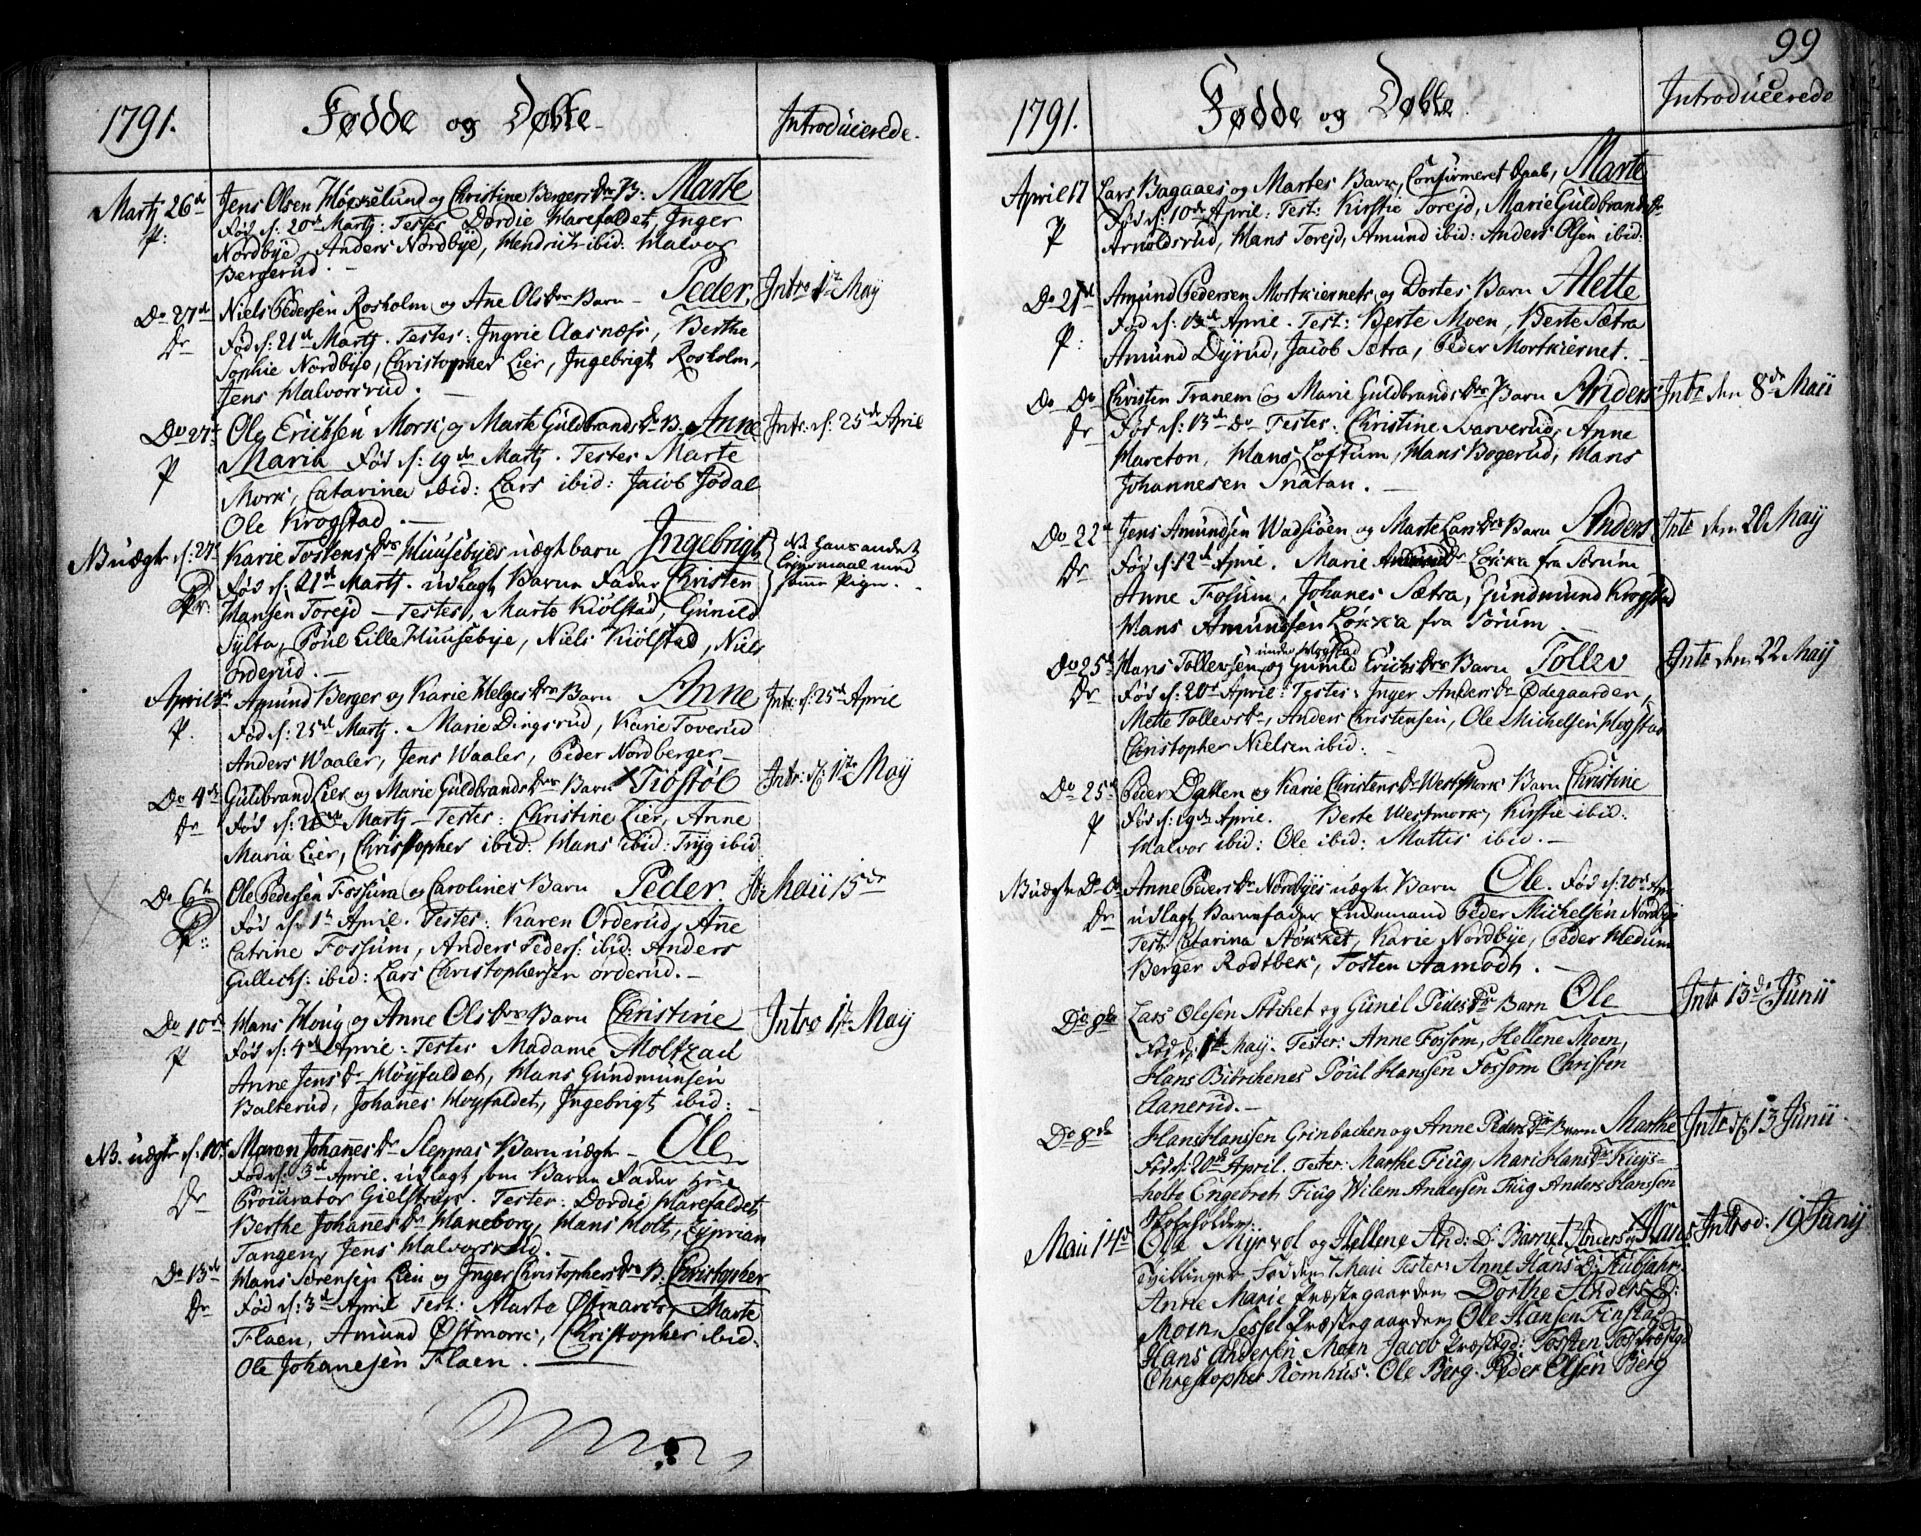 1791. Fødde og Døbte Introducerede.
Martj 26de Jens Olsen Høkkelund og Christine Bergers Dr B: Marte
P: Fød d: 20de Martj: Testes Dordie Harefaldet, Inger
Nordbye, Anders Nordbye, Hendrich ibid: Halvor
Bergerud.
Do 27de Niels Pedersen Rosholm og Ane Ols Dtr Barn - Peder, Intro 1te May
Dr Fød d: 21de Martj. Testes: Ingrie Aasnæss, Berthe
Sophie Nordbye, Christopher Lier, Ingebrigt Rosholm,
Jens Halvorsrud.
Do 27de Ole Erichsen Mork og Marte Guldbrands Dr B. Anne Intr: d: 25de April
P Maria Fød d: 19de Martj. Testes Marte
Mork, Catarina ibid: Lars ibid: Jacob Jødal
Ole Krogstad.
NB uægte d: 27de Karie Tostens Dtr Huusebyes uægte barn Ingebrigt det hans andet
Dr. Fød d: 21de Martj. udlagt Barne Fader Christen Leyermaal med
Hansen Toreid - Testes, Marte Kiølstad, Gunild samme Pige.
Sylta, Poul Lille Huusebye, Niels Kiølstad, Niels
Orderud.
April 1ste Amund Berger og Karie Helges Dtr Barn Anne Intr: d: 25de April
P. Fød d: 25de Martj. Marie Dingsrud, Karie Toverud
Anders Waaler, Jens Waaler, Peder Nordberger
Do 4de Guldbrand Lier og Marie Guldbrands Dtr Barn Tiøstøl Intr: d: 1te May
Dr Fød d: Martj - Testes: Christine Lier, Anne
Maria Lier, Christopher ibid: Hans ibid: Tryg ibid
Do 6te Ole Pedersen Fossum og Carolines Barn Peder. Maii 15de
P: Fød d: 1te April. Testes: Karen Orderud, Ane
Catrine Fossum, Anders Peders: ibid: Anders
Gullichs: ibid: Lars Christophersen Orderud.
Do 10de Hans Houg og Anne Ols Dtr Barn Christine Intro 1te May
P Fød d: 4de April: Testes Madame Moltzau
Anne Jens Dr Høyfaldet, Hans Gundmunsen
Balterud, Johanes Høyfaldet, Ingebrigt ibid:
NB. uægte d: 10de Maren Johannes Dr Sleppas Barn uægte - Ole
Dr Fød d: 3de April. udlagt som Barne Fader Hrr
Procurator Gielstrup. Testes: Dordie Harefaldet,
Berthe Johannes Dr Haneborg, Hans Holt, Zyprian
Tangen, Jens Halvorsrud.
Do 13de Hans Sørensen Lein og Inger Christophers Dtr B. Christopher
Dr Fød d: 3de April Test: Marte Østmark, Marte
Flaen, Amund Østmork, Christopher ibid.
Ole Johanesen Flaen.
99
1791. Fødde og Døbte. Introducerede
April 17 Lars Bagaaes og Martes Barn, Confirmeret Daab, Marte
P Fød d: 10de April: Test: Kirstie Toreid, Marie Guldbrands Dr
Arnoldsrud, Hans Toreid, Amund ibid: Anders Olsen ibid:
Do 21de Amund Pedersen Mortkiernets og Dortes Barn Alette
P: Fød d: 13de April. Test: Berte Moen, Berte Sætra
Amund Dyrud, Jacob Sætra, Peder Mortkiernet.
Do Do Christen Tranem og Marie Guldbrands Dtr Barn Anders Intr den 8de Maii
Dr Fød d: 13de Do Testes: Christine Svarverud, Anne
Mareton, Hans Loftum, Hans Bogerud, Hans
Johannesen Snatan.
Do 22de Jens Amundsen Wadsiøen og Marte Lars Dtr Barn Anders Intr den 20 May
Dr Fød d: 12de April. Marie Dr Løkka fra Sørum
Anne Fosum, Johanes Sætra, Gundmund Krogstad
Hans Amundsen Løkka fra Sørum
Do 25de Hans Tollevsen under Hogstad og Gunild Erichs Dtr Barn Tollev Intr den 22 May
Dr Fød d: 20de April: Testes: Inger Anders Dr Ødegaarden,
Mette Tollevs Dr, Anders Christensen, Ole Michelsen Hogstad
Christopher Nielsen ibid:
Do 25de Peder Dakken og Karie Christens Dr Westmork Barn Christine
P Fød d: 19de April. Berte Westmork, Kirstie ibid:
Halvor ibid: Ole ibid: Mattis ibid.
NB uægte Do Do Anne Peders Dr Nordbyes uægte Barn Ole. Fød d: 20de Apr
Dr udlagt Barnefader Enkemand Peder Michelsen Nordbye
Test: Catarina Støkket, Karie Nordbye, Peder Medium
Berger Rodtbek, Tosten Aamodt.
Do 8de Lars Olesen Støchet og Gunil Peders Dr Barn Ole Intr 13de Junii
Fød d: 1te May. Tester: Anne Fossom, Hellene Moen,
Hans Birchenes Poul Hanssen Fossom Christen
Aanerud.
Do 8de Hans Hanssen Grinbachen og Anne Peders Dtr Barn Marthe Intr d. 13 Junii
Fød d: 20de April. Tester: Marthe Tiug, Mari Hans Dr Kuys-
holte Engebret Tiug Wilem Andersen Tiug Anders Hanssen
Skoleholder.
Maii 14de Ole Myrvol og Hellene And: D: Barnet Anders og Hans Introd: 19 Junij
Tvillinger Fød den 7 Mai Tester: Anne Hans D: Kubsahr.
Anne Marie Præstegaarden Dorthe Anders D:
Moen Sessel Præstegaarden Ole Hansen Finstad
Hans Andersen Moen Jacob Præstegd: Tosten Præstegd
Christopher Romhus. Ole Berg. Peder Olsen Berg